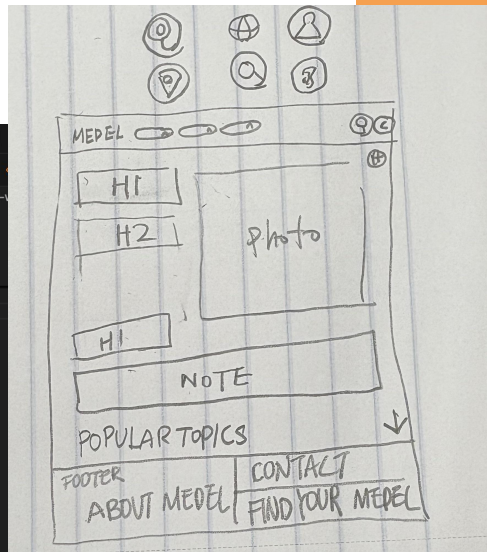 MEDEL
H1
H2
Photo
H1
NOTE
POPULAR TOPICS
FOOTER
ABOUT MEDEL
CONTACT
FIND YOUR MEDEL